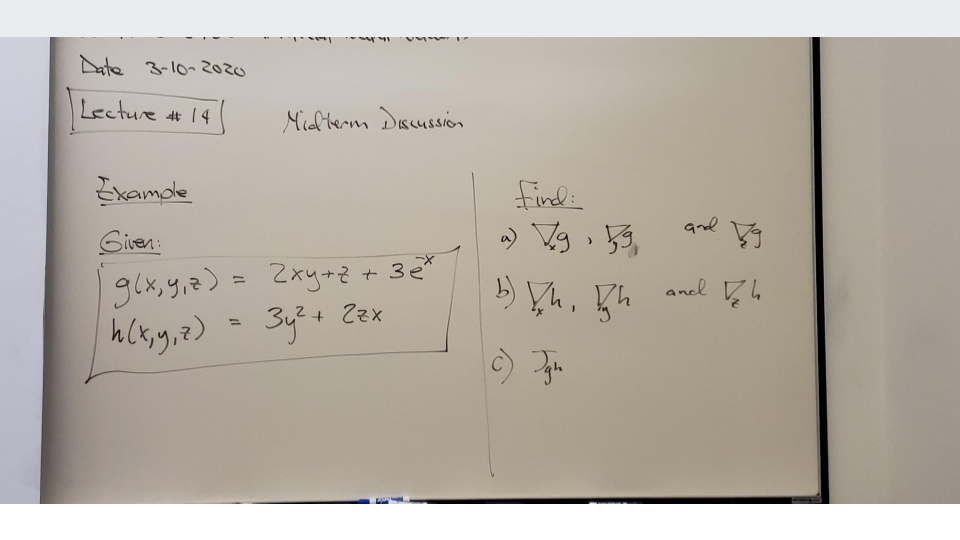 Date 3-10-2020
Lecture # 14
Midterm Discussion
Example
Given:
g(x,y,z) = 2xy+z + 3e^-x
h(x,y,z) = 3y² + 2zx
Find:
a) ∇ₓg , ∇ᵧg and ∇_z g
b) ∇ₓh, ∇ᵧh and ∇_z h
c) J_gh